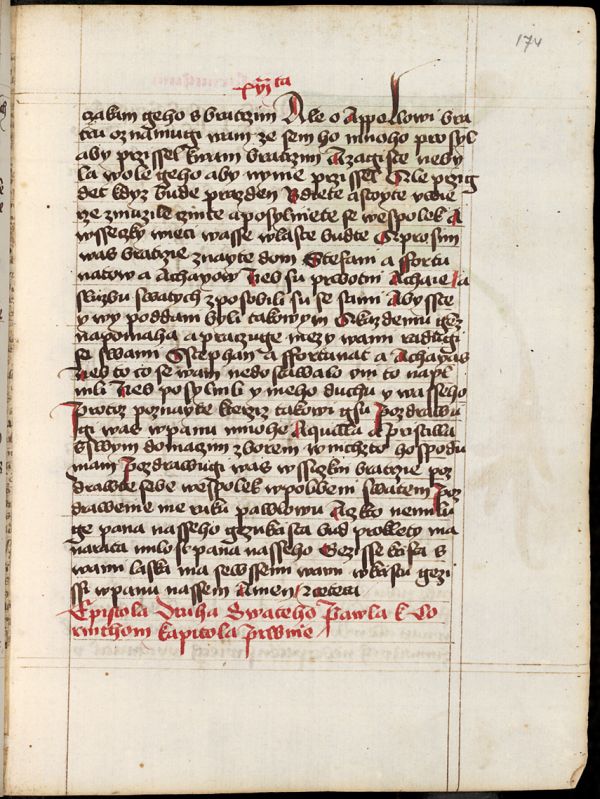 174
xvita
czakam geho s bratrzimi Ale o Appollowi bra
trzi oznamugi wam ze sem ho mnoho prosyl
aby przissel kwam bratrzimi A zagiste neby
la wole geho aby nynie przissel Ale przig
det kdyz bude prazden Bdiete a stoyte vwie
rze zmuzile czinte a posylniete se wespolek A
wsseczky wieci wasse wlasce budte A prosim
was bratrzie znayte dom Stefani a ffortu
natow a Achayow Neb su prwotni Achaie A
sluzbu swatych zposobili su se sami Abysste
y wy poddani byli takowym A kazdemu genz
napomaha a praczuge mezy wami radugi
se swami Stephan a ffortunat a Achayas
Neb to co se wam nedostawalo oni to napl
nili Neb posylnili y meho duchu y wasseho
Protoz poznayte kterziz takowi gsu Pozdrawu
gi was w panu mnoho Aquilla a Priscilla
s swym domaczim zborem v nichzto hospodu
mam Pozdrawugi was wssiczkni bratrzie poz
drawte sebe wespolek w polibeni swatem Poz
drawenie me ruku pawlowu Ac kto nemilu
ge pana nasseho gezukrista bud proklety ma
ranata milost pana nasseho Gezisse krista s
wami laska ma sewssiemi wami w kristu gezi
ssi w panu nassem Amen et cetera
Epistola Druha Swateho Pawla k Ko
rinthom kapitola prwnie